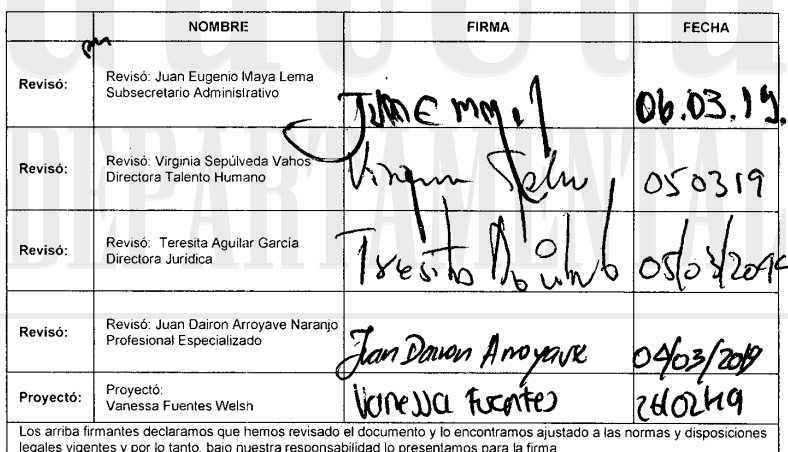 NOMBRE FIRMA FECHA
Revisó: Revisó: Juan Eugenio Maya Lema
Subsecretario Administrativo
06.03.19.
Revisó: Revisó: Virginia Sepúlveda Vahos
Directora Talento Humano
050319
Revisó: Revisó: Teresita Aguilar García
Directora Jurídica
05/03/2019
Revisó: Revisó: Juan Dairon Arroyave Naranjo
Profesional Especializado
Juan Dairon Arroyave 04/03/2019
Proyectó: Proyectó:
Vanessa Fuentes Welsh
Vanessa Fuentes
Los arriba firmantes declaramos que hemos revisado el documento y lo encontramos ajustado a las normas y disposiciones
legales vigentes y por lo tanto, bajo nuestra responsabilidad lo presentamos para la firma
DEPARTAMENTAL